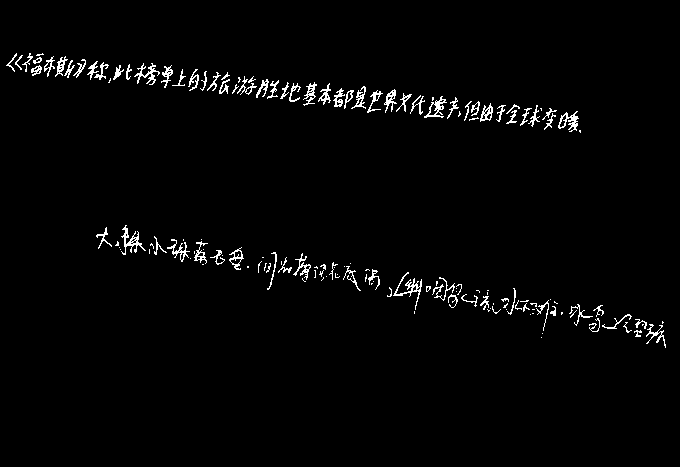 《福布斯》称,此榜单上的旅游胜地基本都是世界文化遗产,但由于全球变暖、
大珠小珠落玉盘.间关莺语花底滑,幽咽泉流冰下难.冰泉冷涩弦